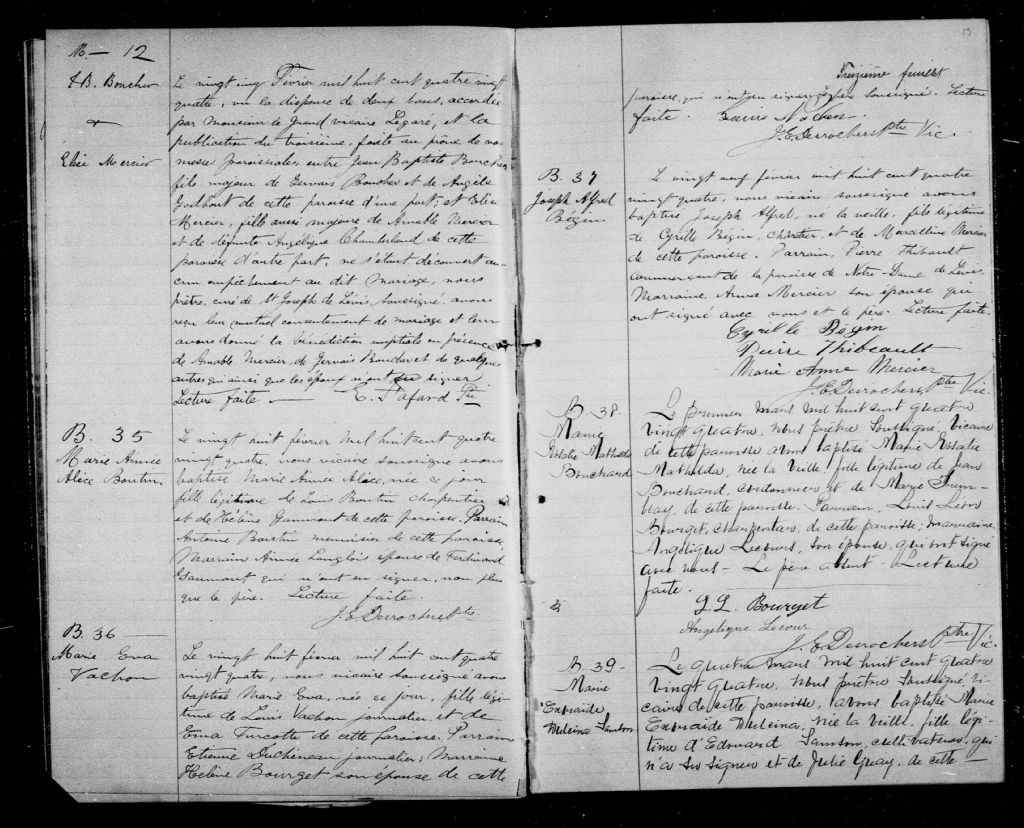 M. — 12
J. B. Boucher
&
Elise Mercier
Le vingt cinq Février mil huit cent quatre vingt
quatre, vu la dispense de deux bans, accordée
par Monsieur le Grand vicaire Légaré, et la
publication du troisième, faite au prône de nos
messes paroissiales, entre Jean Baptiste Boucher
fils majeur de Gervais Boucher et de Angèle
Godbout de cette paroisse d'une part; et Elise
Mercier, fille aussi majeure de Amable Mercier
et de défunte Angélique Chamberland de cette
paroisse d'autre part, ne s'étant découvert au-
cun empêchement au dit Mariage, nous
prêtre, curé de St Joseph de Lévis, soussigné avons
reçu leur mutuel consentement de mariage et leur
avons donné la bénédiction nuptiale en présence
de Amable Mercier, de Gervais Boucher et de quelques
autres qui ainsi que les époux n'ont su signer
Lecture faite — E. Fafard Ptre
B. 35
Marie Année
Alice Boutin
Le vingt huit février mil huit cent quatre
vingt quatre, nous vicaire soussigné avons
baptisé Marie Année Alice, née ce jour
fille légitime de Louis Boutin charpentier
et de Hélène Gaumont de cette paroisse. Parrain
Antoine Boutin menuisier de cette paroisse
Marraine Année Langlois épouse de Ferdinand
Gaumont qui n'ont su signer, non plus
que le père. Lecture faite.
J. E. Desrochers Ptre
B. 36
Marie Eva
Vachon
Le vingt huit février mil huit cent quatre
vingt quatre, nous vicaire soussigné avons
baptisé Marie Eva, née ce jour, fille légi-
time de Louis Vachon journalier et de
Emma Turcotte de cette paroisse. Parrain
Etienne Duchineau journalier; Marraine
Hélène Bourget son épouse de cette
13
Treizième feuillet
paroisse, qui n'ont su signer, père soussigné. Lecture
faite. Louis Vachon
J. E. Desrochers Ptre Vic.
B. 37
Joseph Alfred
Bégin
Le vingt neuf février mil huit cent quatre
vingt quatre, nous vicaire soussigné avons
baptisé Joseph Alfred, né la veille, fils légitime
de Cyrille Bégin, charretier, et de Marcelline Mercier
de cette paroisse. Parrain, Pierre Thibault
commerçant de la paroisse de Notre-Dame de Lévis,
Marraine, Anne Mercier son épouse qui
ont signé avec nous et le père. Lecture faite.
Cyrille Bégin
Pierre Thibeault
Marie Anne Mercier
J. E. Desrochers Ptre Vic.
B. 38.
Marie
Rosalie Mathilda
Bouchard
Le premier Mars mil huit cent quatre
vingt quatre, nous prêtre soussigné, vicaire
de cette paroisse avons baptisé Marie Rosalie
Mathilda, née la veille, fille légitime de Jean
Bouchard, cordonnier et de Marie Trem-
blay, de cette paroisse. Parrain, Louis Léon
Bourget, charpentier, de cette paroisse; marraine,
Angélique Lecours, son épouse, qui ont signé
avec nous — Le père absent — Lecture
faite.
L. L. Bourget
Angelique Lecour
J. E. Desrochers Ptre Vic.
B. 39 -
Marie
Exeraïde
Méleina Samson
Le quatre mars mil huit cent quatre
vingt quatre, nous prêtre soussigné, vi-
caire de cette paroisse, avons baptisé Marie
Exeraïde Méleina, née la veille, fille légi-
time d'Edouard Samson, cultivateur, qui
n'a su signer et de Julie Guay, de cette